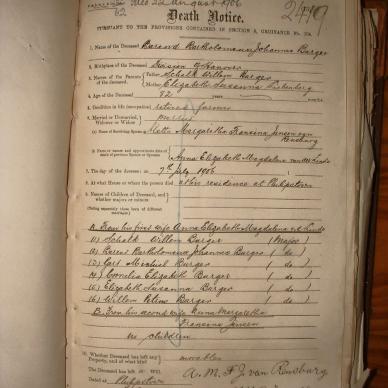 22 August 1906
62
2410
Death Notice.
PURSUANT TO THE PROVISIONS CONTAINED IN SECTION 9, ORDINANCE No. 104.
1. Name of the Deceased Barend Bartholomeus Johannes Burger
2. Birthplace of the Deceased Division of Hanover
3. Names of the Parents of the Deceased Father Schalk Willem Burger
Mother Elizabeth Susanna
4. Age of the Deceased 82 years months
5. Condition in life (occupation) retired farmer
6. Married or Unmarried, Widower or Widow married
(a) Name of Surviving Spouse Martha Margaretha Francina Jansen van Rensburg
Anna Elizabeth Magdalena van der Linde
7. The day of the decease 7th July 1906
8. At what House or where the person died at his residence at Philipstown
9. Names of Children of Deceased, and whether majors or minors
(Stating separately those born of different marriages)
A. From his first wife Anna Elizabeth Magdalena v d Linde
(1) Schalk Willem Burger (Major)
(2) Barend Bartholomeus Johannes Burger (do)
(3) Carl Michiel Burger (do)
(4) Cornelia Elizabeth Burger (do)
(5) Elizabeth Susanna Burger (do)
(6) Willem Petrus Burger (do)
B. From his second wife Margaretha
Francina Jansen
no children
10. Whether Deceased has left any Property, and of what kind movables
The Deceased has left
A. M. F. J. van Rensburg
Dated at Philipstown